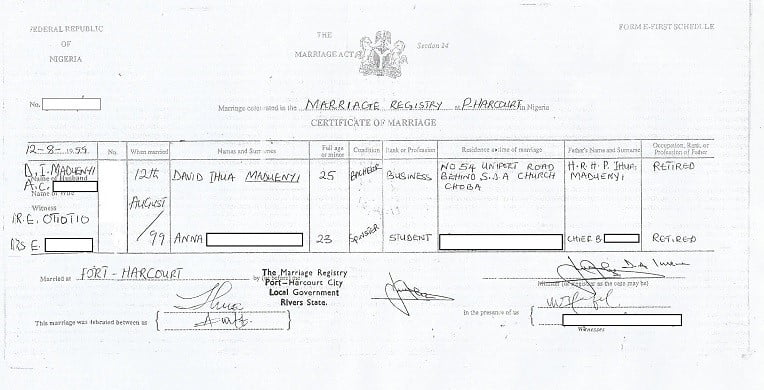 FEDERAL REPUBLIC
OF
NIGERIA
THE
MARRIAGE ACT
Section 24
FORM E-FIRST SCHEDULE
No.
Marriage celebrated in the MARRIAGE REGISTRY at P.HARCOURT in Nigeria
CERTIFICATE OF MARRIAGE
12-8-1999 No. When married Names and Surnames Full age or minor Condition Rank or Profession Residence at time of marriage Father's Name and Surname Occupation, Rank, or Profession of Father
D.I. MADUENYI
Name of Husband
A.C.
Name of Wife
Witness
R.E. OTIOTIO
E.
12th
AUGUST
/99
DAVID IHUA MADUENYI 25 BACHELOR BUSINESS
NO 54 UNIPORT ROAD
BEHIND S.D.A CHURCH
CHOBA
H.R.H.P. IHUA
MADUENYI
RETIRED
ANNA 23 SPINSTER STUDENT CHIEF B RETIRED
Married at PORT-HARCOURT by (or before) me
The Marriage Registry
Port-Harcourt City
Local Government
Rivers State.
Minister (or Registrar as the case may be)
This marriage was celebrated between us
In the presence of us
Witnesses